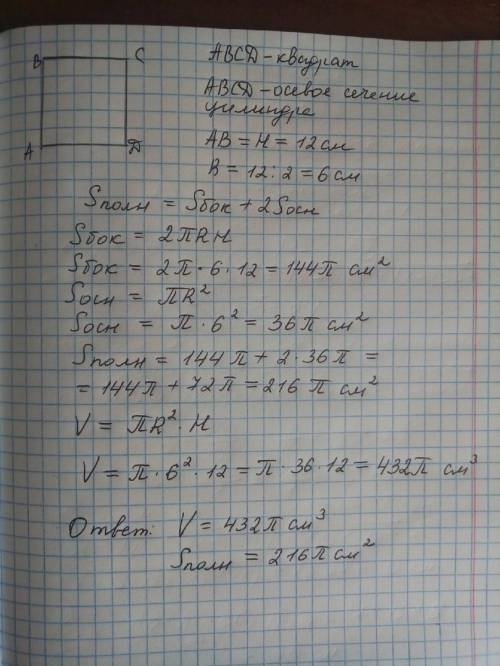 B C
A D
ABCD - квадрат
ABCD - осевое сечение
цилиндра
AB = H = 12 см
R = 12 : 2 = 6 см
Sполн = Sбок + 2Sосн
Sбок = 2πRH
Sбок = 2π · 6 · 12 = 144π см²
Sосн = πR²
Sосн = π · 6² = 36π см²
Sполн = 144π + 2 · 36π =
= 144π + 72π = 216π см²
V = πR² · H
V = π · 6² · 12 = π · 36 · 12 = 432π см³
Ответ: V = 432π см³
Sполн = 216π см²